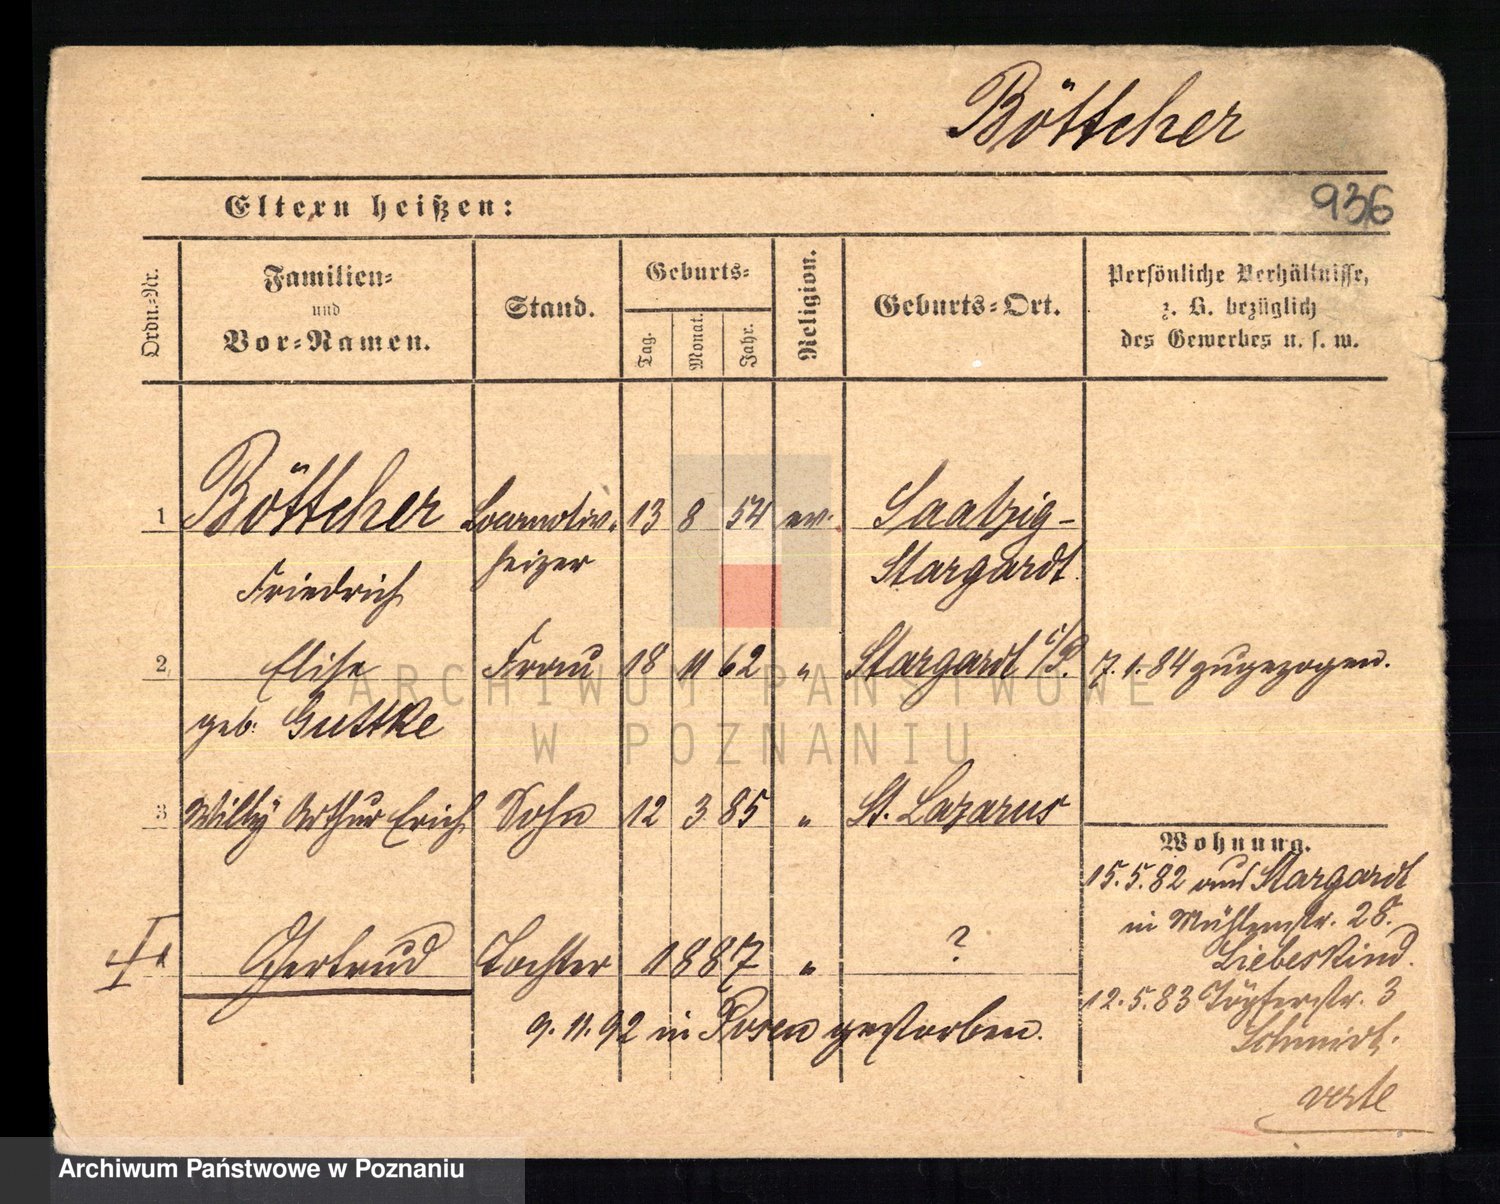 Böttcher
936
Eltern heißen:
Ordn.-Nr.
Familien-
und
Vor-Namen.
Stand.
Geburts-
Tag.
Monat.
Jahr.
Religion.
Geburts-Ort.
Persönliche Verhältnisse,
z. B. bezüglich
des Gewerbes u. s. w.
1 Böttcher Locomotiv- 13 8 54 ev. Saatzig-
Friedrich heizer Stargardt.
2 Elise Frau 18 11 62 " Stargardt i/P. 7.1.84 zugezogen.
geb: Guttke
3 Willy Arthur Erich Sohn 12 3 85 " St. Lazarus
Wohnung.
15.5.82 aus Stargardt
in Mühlenstr. 28.
Liebeskind.
Gertrud Tochter 1887 " ?
12.5.83 Töpferstr. 3
Schmidt.
9.11.92 in Posen gestorben.
verte
ARCHIWUM PAŃSTWOWE
W POZNANIU
Archiwum Państwowe w Poznaniu